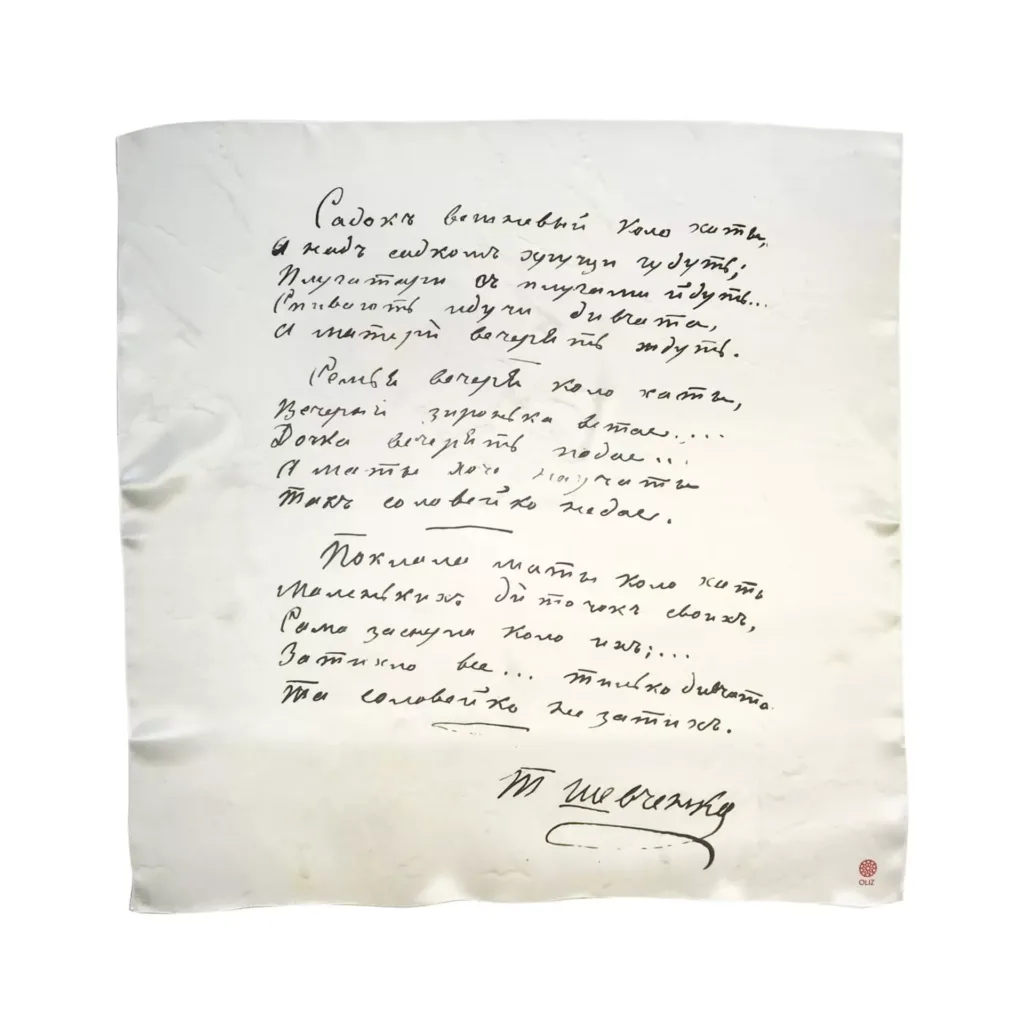 Садокъ вешневый коло хаты,
А надъ садкомъ хрущи гудуть;
Плугатари съ плугами йдуть...
Спивають идучи дивчата,
А матери вечерять ждуть.
Семья вечеря коло хаты,
Вечерний зиронька встае....
Дочка вечерять подае...
А маты хоче научаты
Такъ соловейко недае.
Поклала маты коло хаты
Маленькихъ диточокъ своихъ,
Сама заснула коло ихъ;...
Затихло все... тилько дивчата
Та соловейко не затихъ.
Т Шевченко
OLIZ